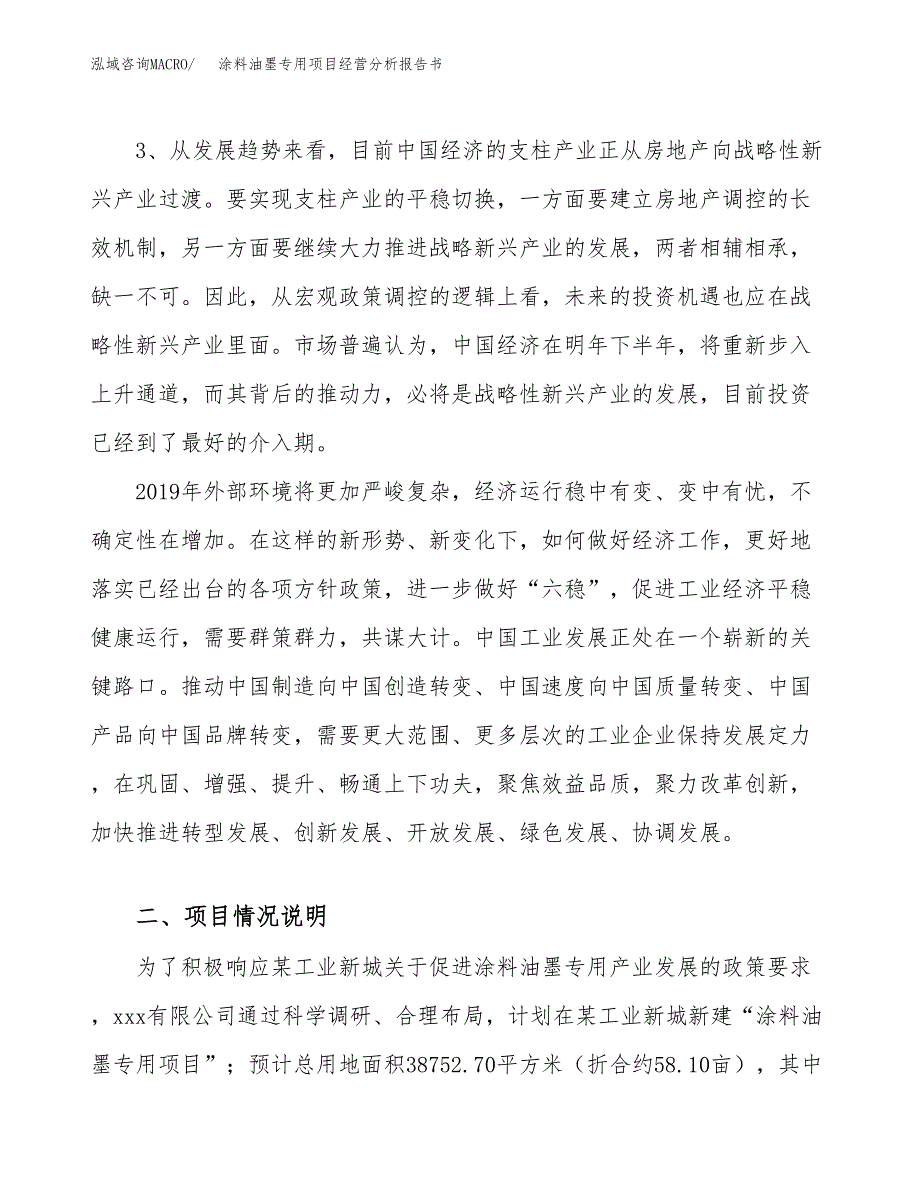 泓域咨询MACRO/ 涂料油墨专用项目经营分析报告书
3、从发展趋势来看，目前中国经济的支柱产业正从房地产向战略性新
兴产业过渡。要实现支柱产业的平稳切换，一方面要建立房地产调控的长
效机制，另一方面要继续大力推进战略新兴产业的发展，两者相辅相承，
缺一不可。因此，从宏观政策调控的逻辑上看，未来的投资机遇也应在战
略性新兴产业里面。市场普遍认为，中国经济在明年下半年，将重新步入
上升通道，而其背后的推动力，必将是战略性新兴产业的发展，目前投资
已经到了最好的介入期。
2019年外部环境将更加严峻复杂，经济运行稳中有变、变中有忧，不
确定性在增加。在这样的新形势、新变化下，如何做好经济工作，更好地
落实已经出台的各项方针政策，进一步做好“六稳”，促进工业经济平稳
健康运行，需要群策群力，共谋大计。中国工业发展正处在一个崭新的关
键路口。推动中国制造向中国创造转变、中国速度向中国质量转变、中国
产品向中国品牌转变，需要更大范围、更多层次的工业企业保持发展定力
，在巩固、增强、提升、畅通上下功夫，聚焦效益品质，聚力改革创新，
加快推进转型发展、创新发展、开放发展、绿色发展、协调发展。
二、项目情况说明
为了积极响应某工业新城关于促进涂料油墨专用产业发展的政策要求
，xxx有限公司通过科学调研、合理布局，计划在某工业新城新建“涂料油
墨专用项目”；预计总用地面积38752.70平方米（折合约58.10亩），其中